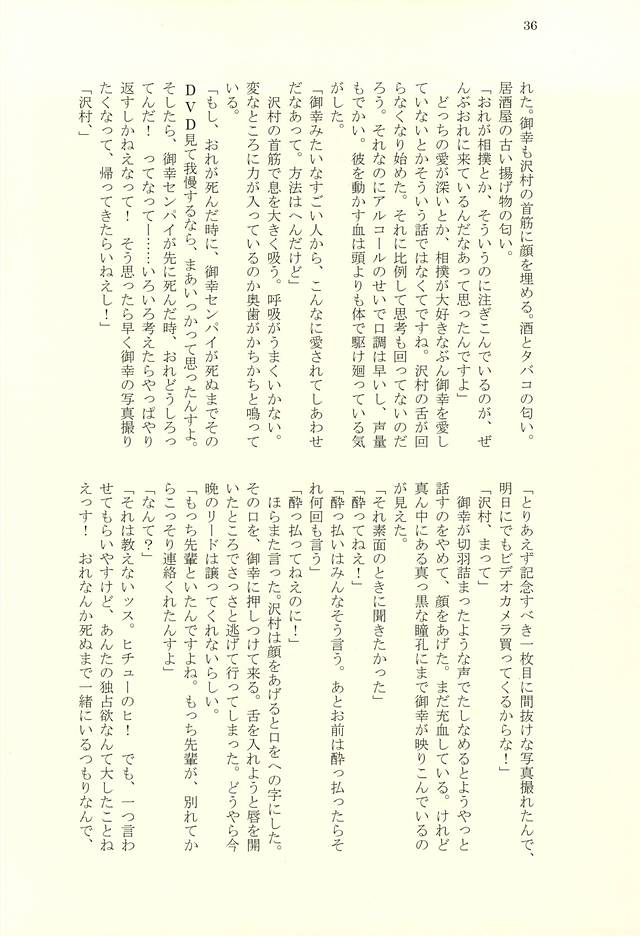 36
れた。御幸も沢村の首筋に顔を埋める。酒とタバコの匂い。
居酒屋の古い揚げ物の匂い。
「おれが相撲とか、そういうのに注ぎこんでいるのが、ぜ
んぶおれに来ているんだなあって思ったんですよ」
どっちの愛が深いとか、相撲が大好きなぶん御幸を愛し
ていないとかそういう話ではなくてですね。沢村の舌が回
らなくなり始めた。それに比例して思考も回ってないのだ
ろう。それなのにアルコールのせいで口調は早いし、声量
もでかい。彼を動かす血は頭よりも体で駆け廻っている気
がした。
「御幸みたいなすごい人から、こんなに愛されてしあわせ
だなあって。方法はへんだけど」
沢村の首筋で息を大きく吸う。呼吸がうまくいかない。
変なところに力が入っているのか奥歯がかちかちと鳴って
いる。
「もし、おれが死んだ時に、御幸センパイが死ぬまでその
DVD見て我慢するなら、まあいっかって思ったんすよ。
そしたら、御幸センパイが先に死んだ時、おれどうしろっ
てんだ！　ってなってー……いろいろ考えたらやっぱやり
返すしかねえなって！　そう思ったら早く御幸の写真撮り
たくなって、帰ってきたらいねえし！」
「沢村、」
「とりあえず記念すべき一枚目に間抜けな写真撮れたんで、
明日にでもビデオカメラ買ってくるからな！」
「沢村、まって」
御幸が切羽詰まったような声でたしなめるとようやっと
話すのをやめて、顔をあげた。まだ充血している。けれど
真ん中にある真っ黒な瞳孔にまで御幸が映りこんでいるの
が見えた。
「それ素面のときに聞きたかった」
「酔ってねえ！」
「酔っ払いはみんなそう言う。あとお前は酔っ払ったらそ
れ何回も言う」
「酔っ払ってねえのに！」
ほらまた言った。沢村は顔をあげると口をへの字にした。
その口を、御幸に押しつけて来る。舌を入れようと唇を開
いたところでさっさと逃げて行ってしまった。どうやら今
晩のリードは譲ってくれないらしい。
「もっち先輩といたんですよね。もっち先輩が、別れてか
らこっそり連絡くれたんすよ」
「なんて？」
「それは教えないッス。ヒチューのヒ！　でも、一つ言わ
せてもらいやすけど、あんたの独占欲なんて大したことね
えっす！　おれなんか死ぬまで一緒にいるつもりなんで、